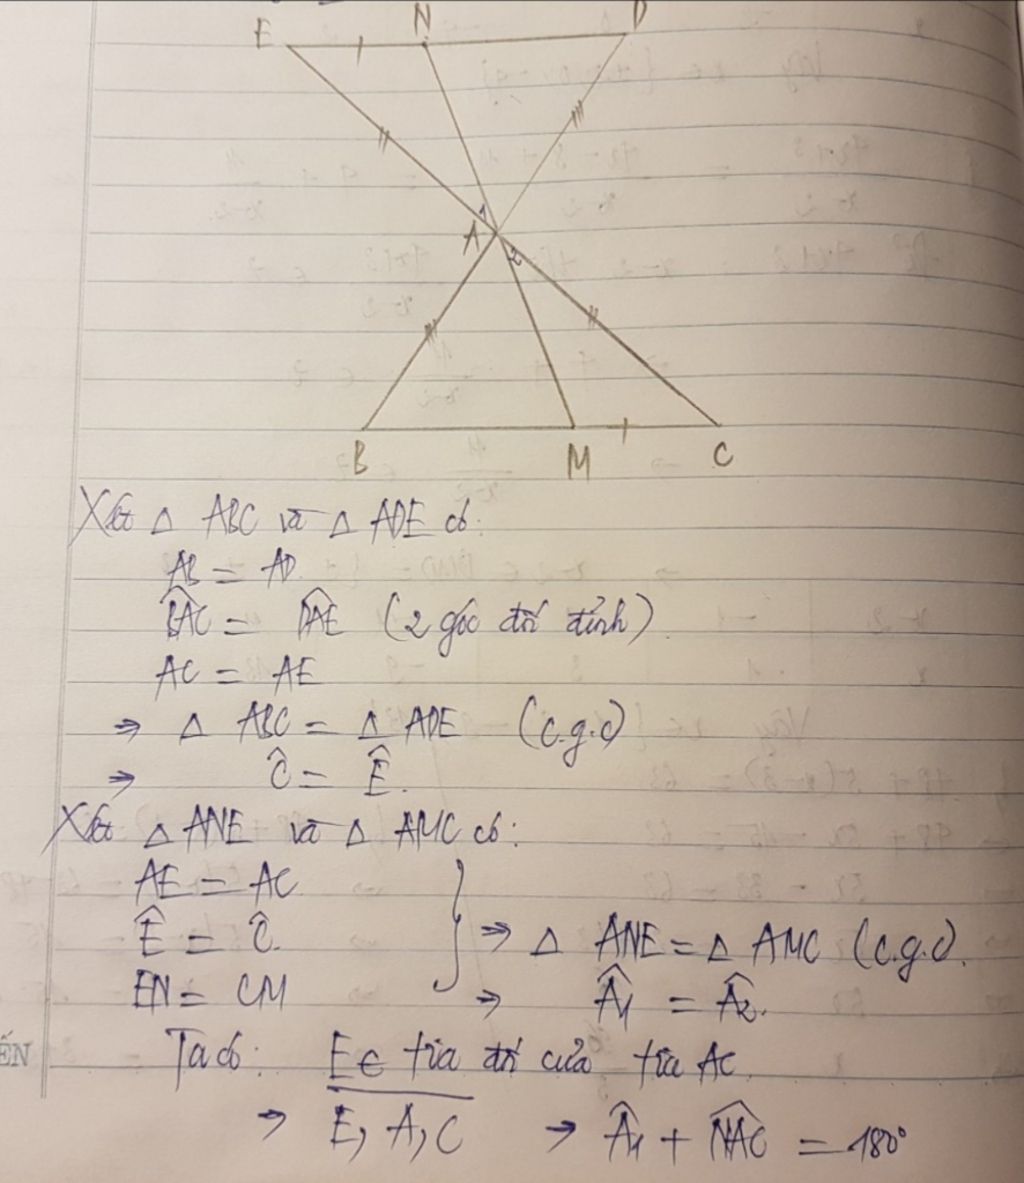 E N D
A 1
2
B M C
Xét Δ ABC và Δ ADE có:
AB = AD.
B̂AC = D̂AE (2 góc đối đỉnh).
AC = AE
⇒ Δ ABC = Δ ADE (c.g.c)
⇒ Ĉ = Ê.
Xét Δ ANE và Δ AMC có:
AE = AC
Ê = Ĉ.
EN = CM
⇒ Δ ANE = Δ AMC (c.g.c).
⇒ Â1 = Â2.
Ta có: E ∈ tia đối của tia AC
⇒ E, A, C → Â1 + N̂AC = 180°
ẾN